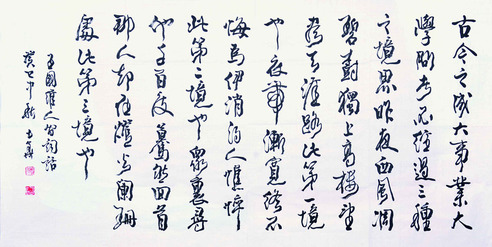 古今之成大事業大
學問者不經過三種
之境界昨夜西風凋
碧樹獨上高樓望
盡天涯路此第一境
也衣帶漸寬終不
悔為伊消得人憔悴
此第二境也眾裏尋
他千百度驀然回首
那人卻在燈火闌珊
處此第三境也
王國維人間詞話
癸巳年秋